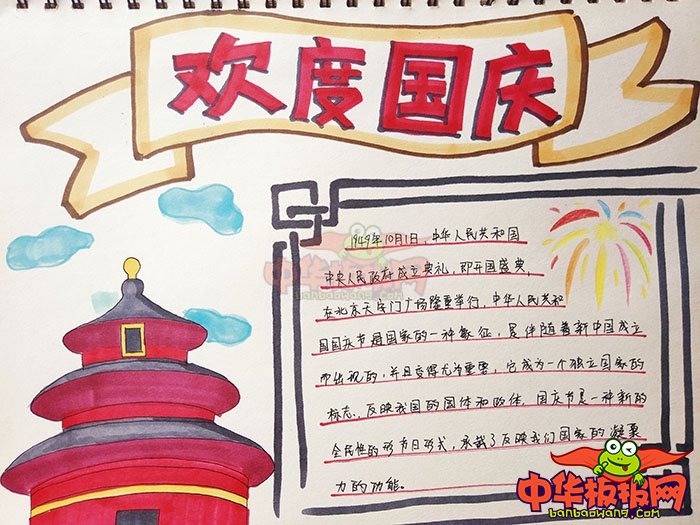 欢度国庆
1949年10月1日,中华人民共和国
中央人民政府成立典礼,即开国盛典,
在北京天安门广场隆重举行,中华人民共和
国国庆节是国家的一种象征,是伴随着新中国成立
而出现的,并且变得尤为重要,它成为一个独立国家的
标志,反映我国的国体和政体,国庆节是一种新的
全民性的形节日形式,承载了反映我们国家的凝聚
力的功能。
中华板报网
banbaowang.com
中华板报网
banbaowang.com